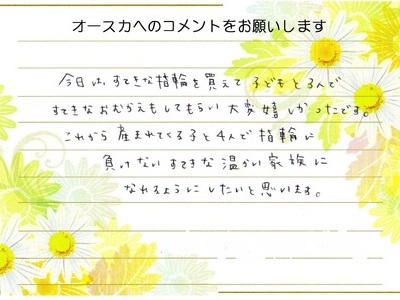 オースカへのコメントをお願いします
今日は、すてきな指輪を買えて子どもと3人で
すてきなおむかえもしてもらい大変嬉しかったです。
これから産まれてくる子と4人で指輪に
負けないすてきな温かい家族に
なれるようにしたいと思います。